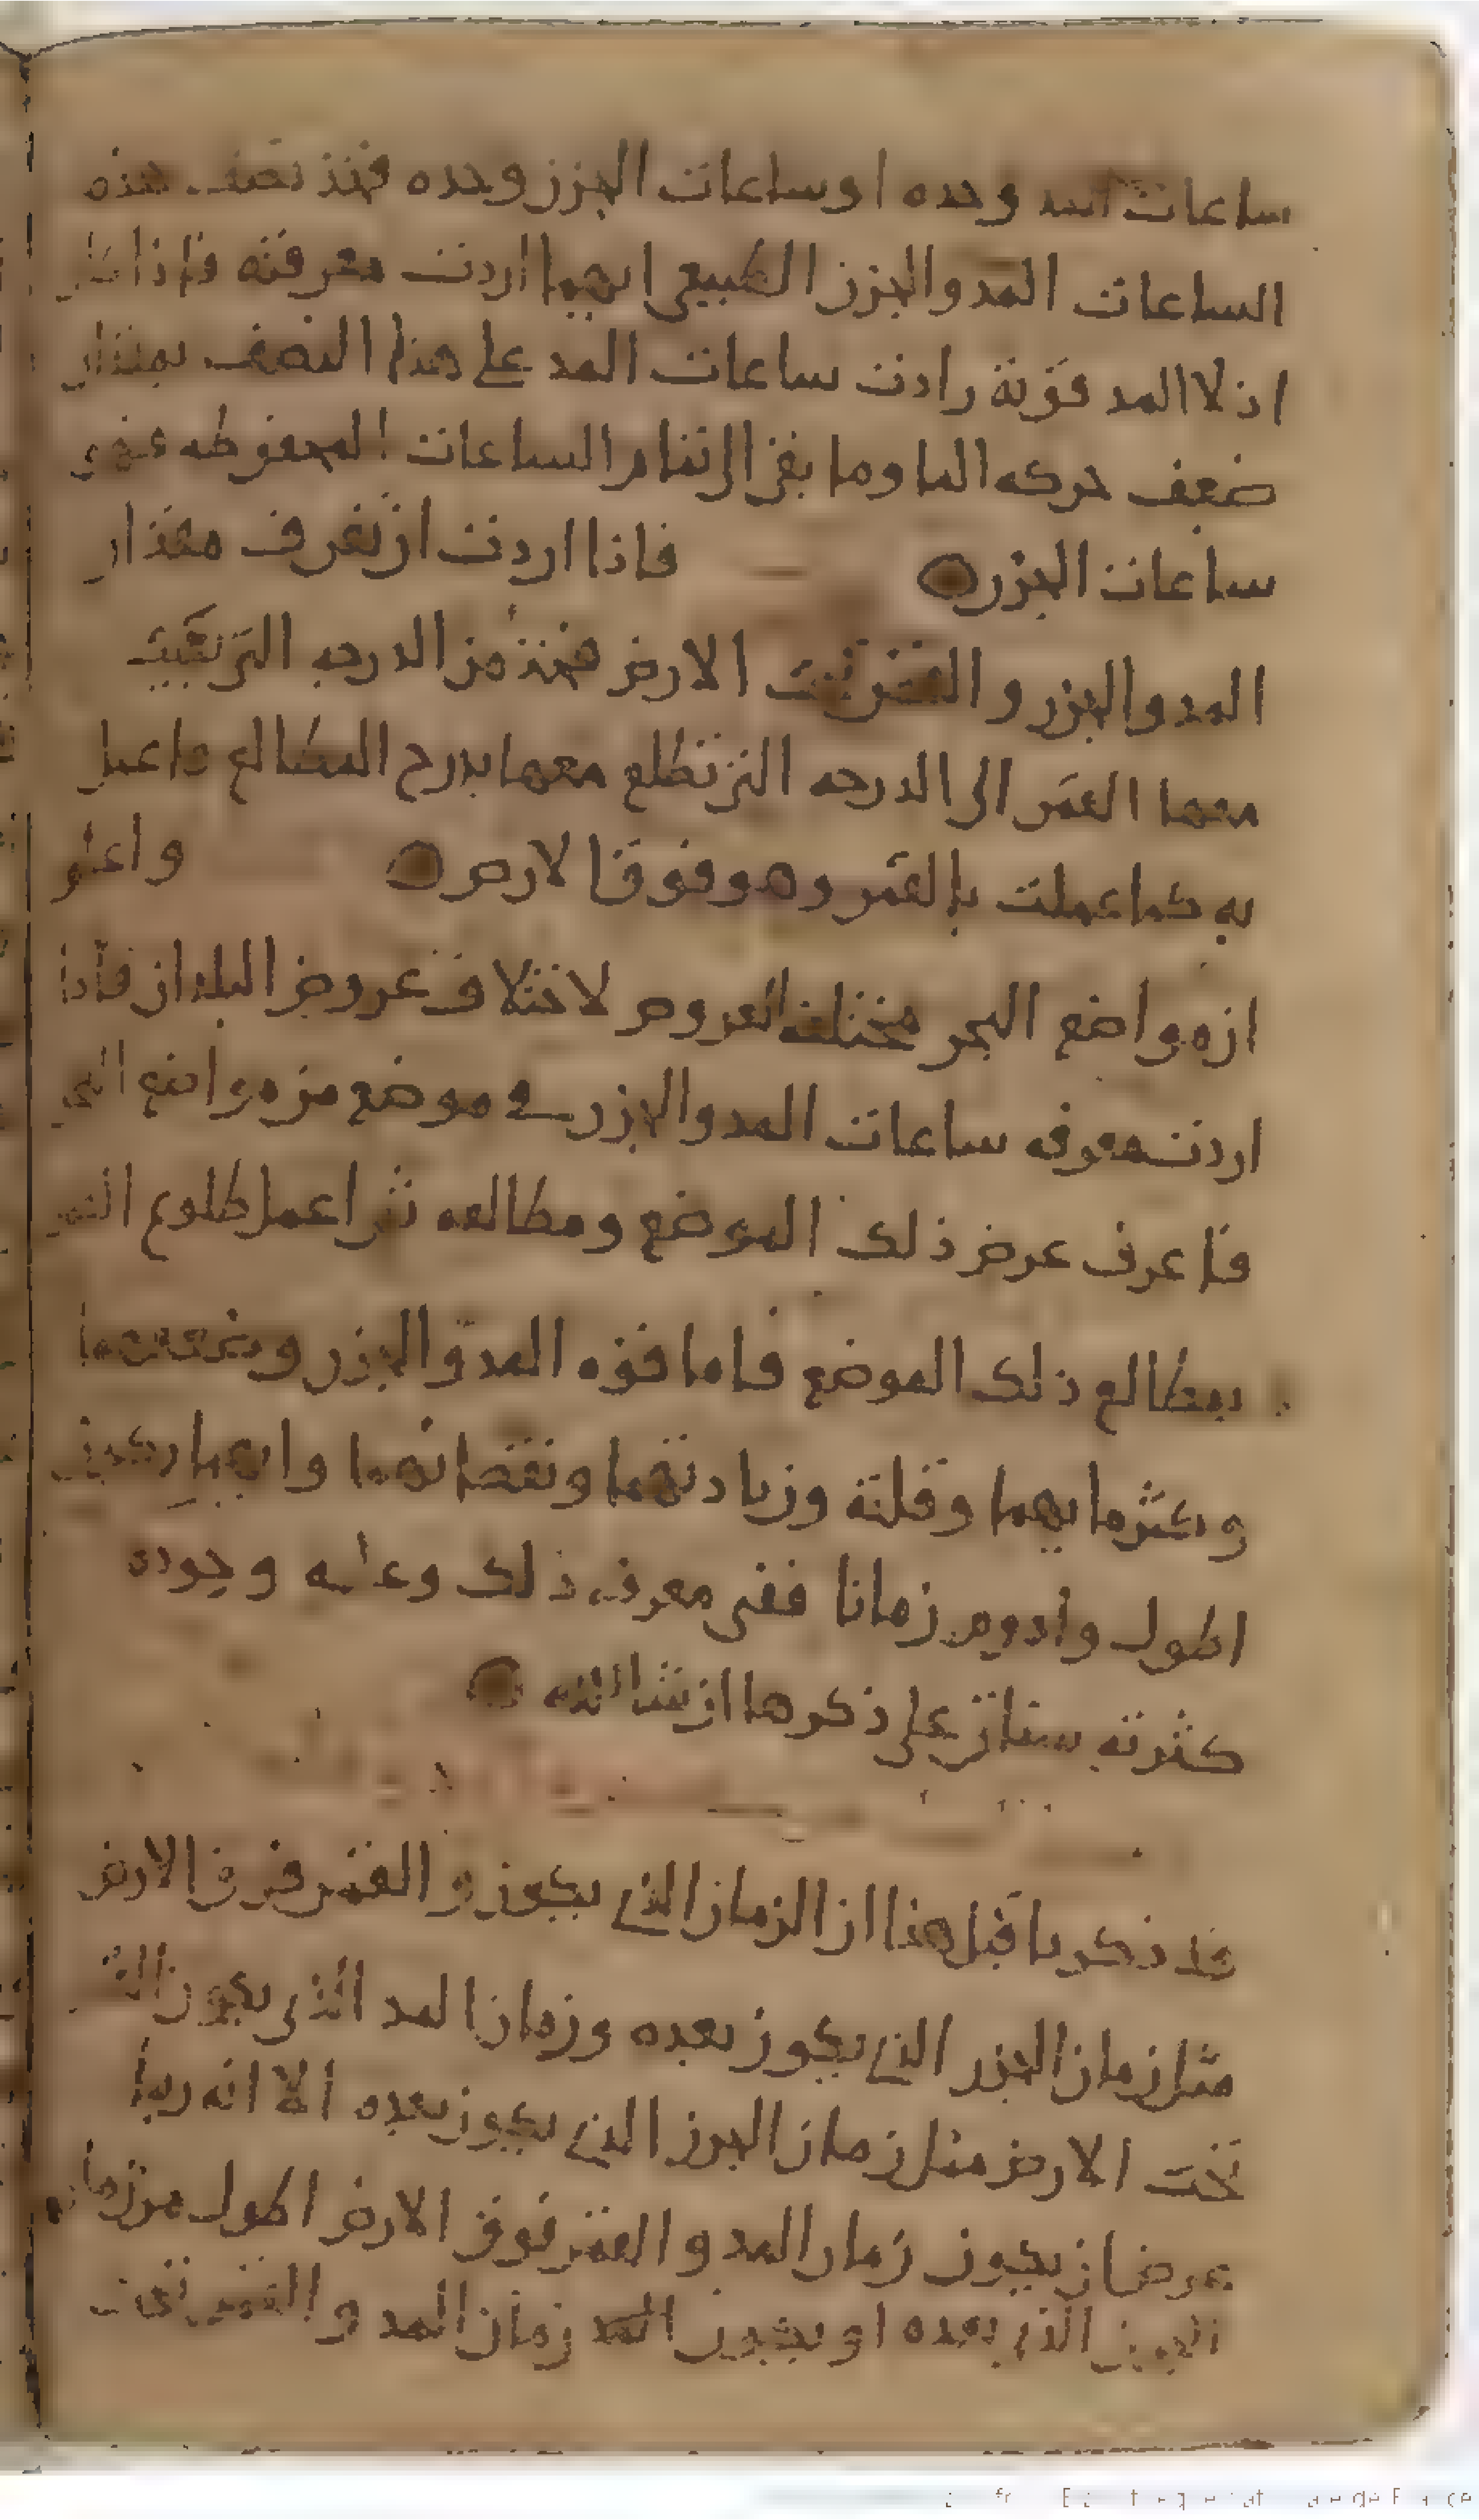 ساعات المد وحده او ساعات الجزر وحده فخذ نصف هذه
الساعات المد والجزر الطبيعي ايهما اردت معرفته فاذا
اذ لا المد قوته زادت ساعات المد على هذا النصف بمقدار
ضعف حركه الما وما بقي الى تمام الساعات المحفوظه فهي
ساعات الجزر فاذا اردت ان تعرف مقدار
المد والجزر والقمر تحت الارض فخذ من الدرجه التي يغيب
معها القمر الى الدرجه التي تطلع معها بدرج المطالع واعمل
به كما عملت بالقمر وهو فوق الارض واعلم
ان مواضع البحر مختلفه العروض لاختلاف عروض البلدان فاذا
اردت معرفه ساعات المد والجزر في موضع من مواضع البحر
فاعرف عرض ذلك الموضع ومطالعه ثم اعمل طلوع القمر
بمطالع ذلك الموضع فاما قوه المد والجزر وضعفهما
وكثر مايهما وقلته وزيادتهما ونقصانهما وايهما يكون
اطول وادوم زمانا ففي معرفه ذلك وعلله وجوده
كثرته سناتي على ذكرها ان شا الله
قد ذكرنا قبل هذا ان الزمان الذي يكون والقمر فوق الارض
مثل زمان الجزر الذي يكون بعده وزمان المد الذي يكون
تحت الارض مثل زمان الجزر الذي يكون بعده الا انه ربما
عرض ان يكون زمان المد والقمر فوق الارض اطول من زمان
الجزر الذي بعده او يكون المد زمان المد والقمر تحت